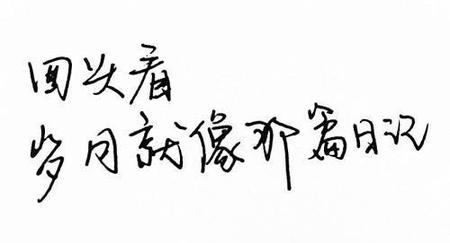 回头看
岁月就像那篇日记